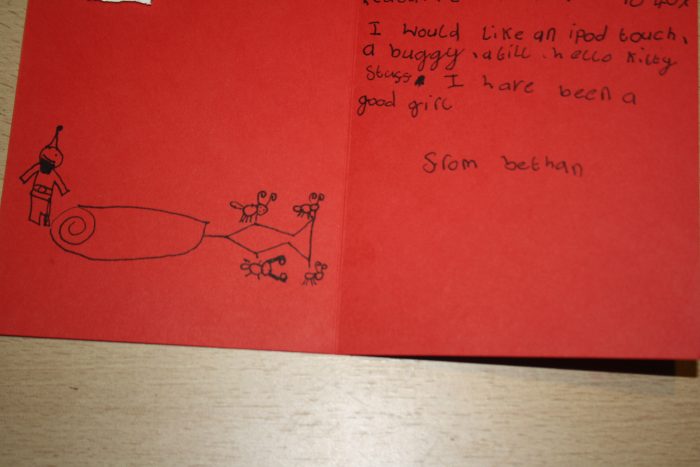 I would like an ipod touch,
a buggy, a till, hello kitty
stuff. I have been a
good girl
from bethan